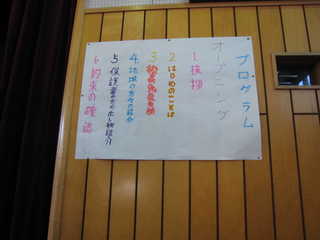 プログラム
オープニング
1 挨拶
2 はじめのことば
3
4 地域の方々の紹介
5 保護者の方のホーム紹介
6 約束の確認